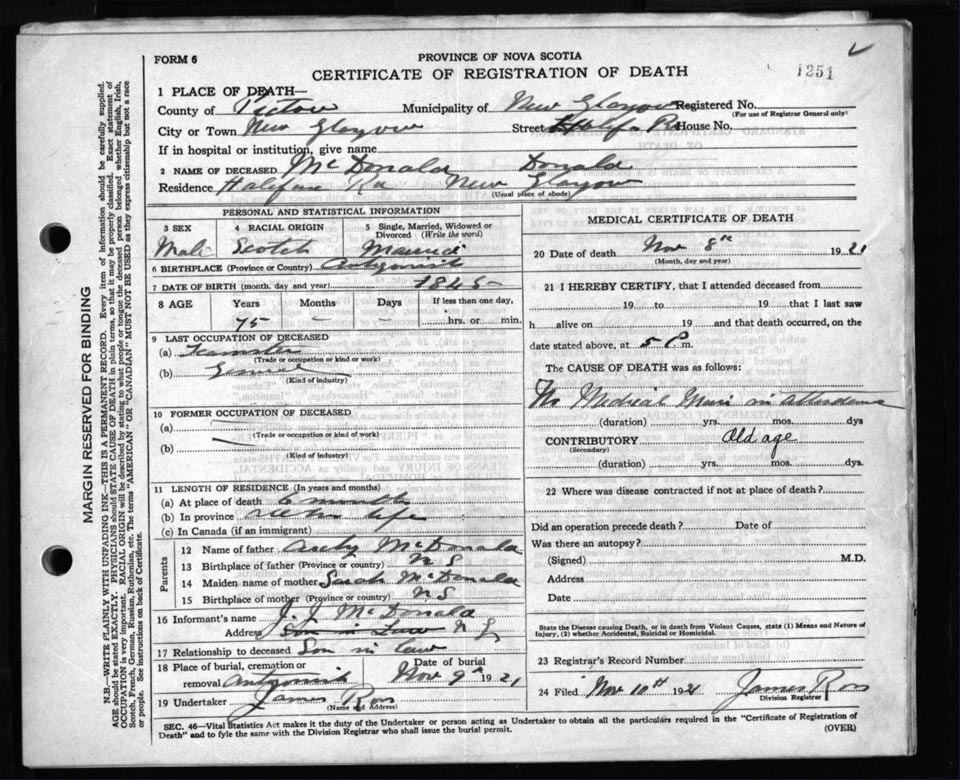 FORM 6
PROVINCE OF NOVA SCOTIA
CERTIFICATE OF REGISTRATION OF DEATH
1251
1 PLACE OF DEATH—
County of Pictou Municipality of New Glasgow Registered No.
(For use of Registrar General only)
City or Town New Glasgow Street Halifax Rd House No.
If in hospital or institution, give name
2 NAME OF DECEASED McDonald Donald
Residence Halifax Rd New Glasgow
(Usual place of abode)
PERSONAL AND STATISTICAL INFORMATION
3 SEX
Male
4 RACIAL ORIGIN
Scotch
5 Single, Married, Widowed or Divorced (Write the word)
Married
6 BIRTHPLACE (Province or Country) Antigonish
7 DATE OF BIRTH (month, day and year) 1845
8 AGE Years Months Days If less than one day,
75 – – hrs. or min.
9 LAST OCCUPATION OF DECEASED
(a) Teamster
(Trade or occupation or kind of work)
(b) General
(Kind of industry)
10 FORMER OCCUPATION OF DECEASED
(a)
(Trade or occupation or kind of work)
(b)
(Kind of industry)
11 LENGTH OF RESIDENCE (In years and months)
(a) At place of death 6 months
(b) In province life
(c) In Canada (if an immigrant)
Parents
12 Name of father McDonald
13 Birthplace of father (Province or country) N S
14 Maiden name of mother Sarah McDonald
15 Birthplace of mother (Province or country) N S
16 Informant's name J. J McDonald
Address son in law N S
17 Relationship to deceased Son in law
18 Place of burial, cremation or removal Antigonish
Date of burial Nov 9 1921
19 Undertaker James Ross
(Name and Address)
MEDICAL CERTIFICATE OF DEATH
20 Date of death Nov 8th 1921
(Month, day and year)
21 I HEREBY CERTIFY, that I attended deceased from
19 to 19 that I last saw
h alive on 19 and that death occurred, on the
date stated above, at 5 P.m.
The CAUSE OF DEATH was as follows:
No Medical in attendance
(duration) yrs. mos. dys
CONTRIBUTORY Old age
(Secondary)
(duration) yrs. mos. dys.
22 Where was disease contracted if not at place of death?
Did an operation precede death? Date of
Was there an autopsy?
(Signed) M.D.
Address
Date
State the Disease causing Death, or in death from Violent Causes, state (1) Means and Nature of
Injury, (2) whether Accidental, Suicidal or Homicidal.
23 Registrar's Record Number
24 Filed Nov 10th 1921 James Ross
Division Registrar
SEC. 46—Vital Statistics Act makes it the duty of the Undertaker or person acting as Undertaker to obtain all the particulars required in the "Certificate of Registration of
Death" and to fyle the same with the Division Registrar who shall issue the burial permit.
(OVER)
MARGIN RESERVED FOR BINDING
N.B.—WRITE PLAINLY WITH UNFADING INK—THIS IS A PERMANENT RECORD. Every item of information should be carefully supplied.
AGE should be stated EXACTLY. PHYSICIANS should STATE CAUSE OF DEATH in plain terms, so that it may be properly classified. Exact statement of
OCCUPATION is very important. RACIAL ORIGIN will be described by stating to what people or tongue the deceased person belonged whether English, Irish,
Scotch, French, German, Russian, Ruthenian, etc. The terms "AMERICAN" OR "CANADIAN" MUST NOT BE USED as they express citizenship but not a race
or people. See instructions on back of Certificate.